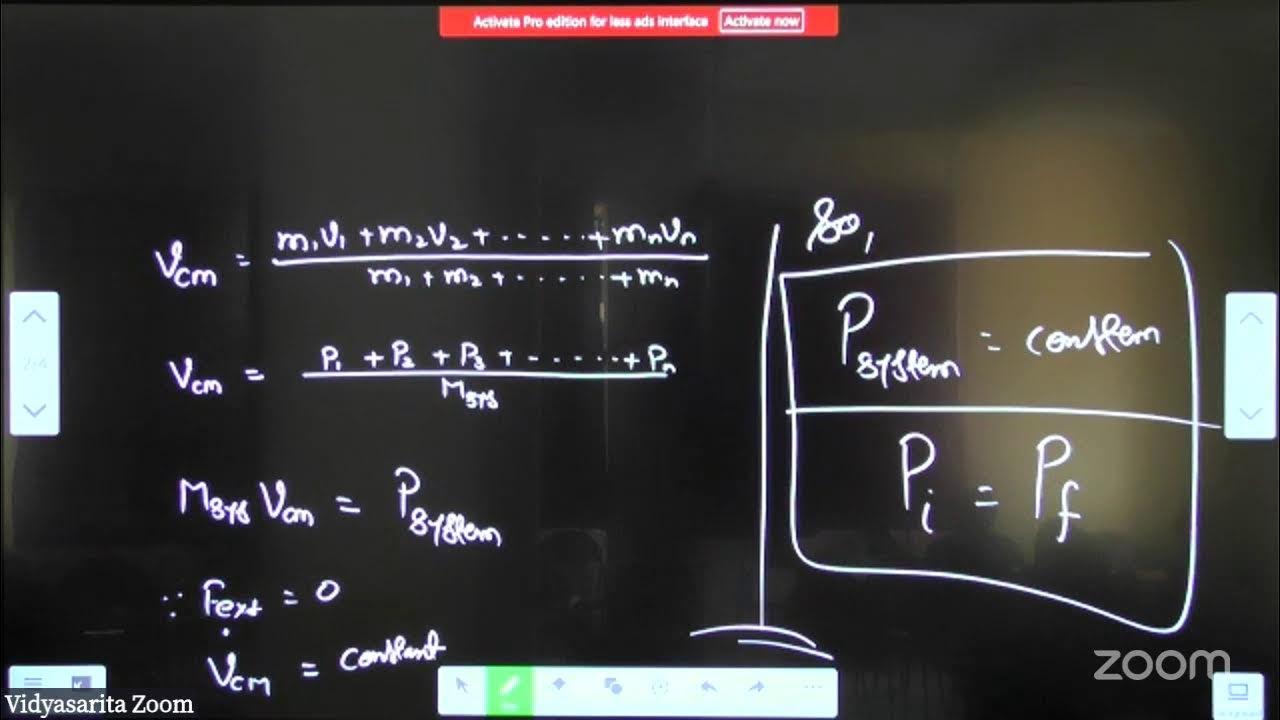 Activate Pro edition for less ads interface Activate now
V_cm = (m₁v₁ + m₂v₂ + ...... + mₙvₙ) / (m₁ + m₂ + ...... + mₙ)
V_cm = (P₁ + P₂ + P₃ + ...... + Pₙ) / M_sys
M_sys V_cm = P_system
∵ F_ext = 0
V_cm = constant
So,
P_system =
P_i = P_f
zoom
Vidyasarita Zoom